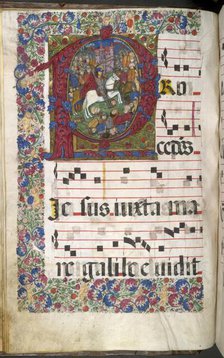 PRo
cedēs
Je sus iuxta ma
re galilee uidit